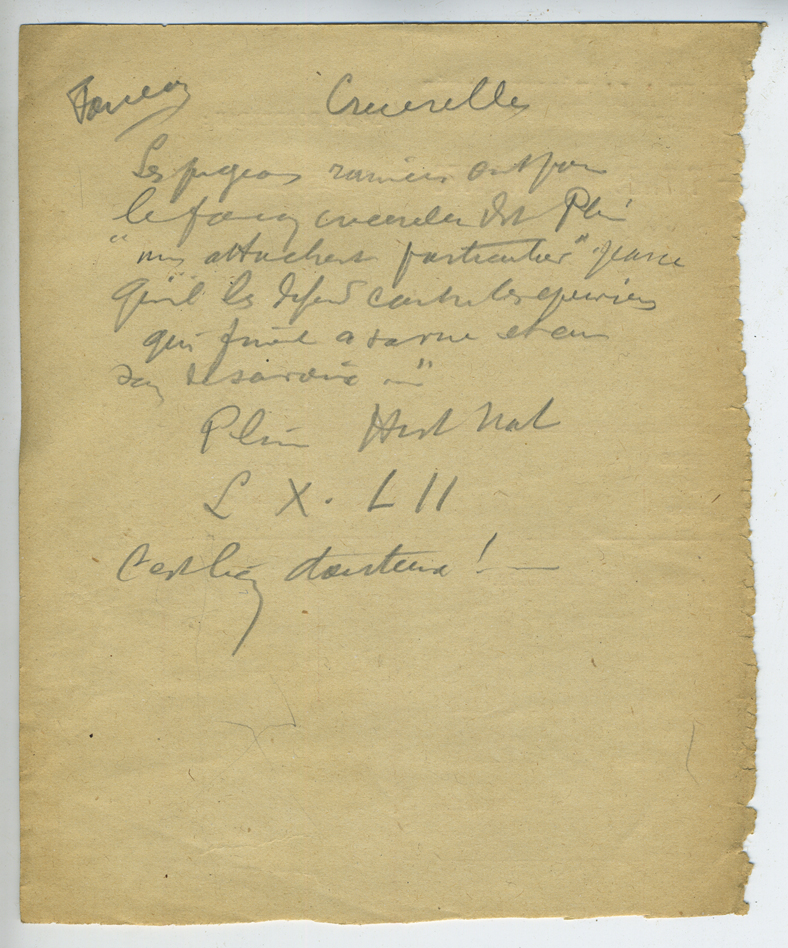 Faucon Crecerelles
Les pigeons ramiers ont pour
le faucon crecerelle dit Plin
"un attachement particulier" parce
qu'il les defend contre les eperviers
qui fuient a sa vue et au
son de sa voix ..."
Plin Hist Nat
L X. LII
C'est bien douteux ! —